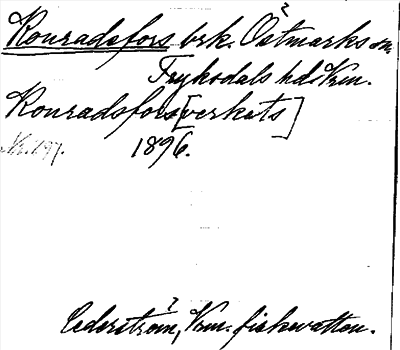 Konradsfors brk. Östmarks sn.
Fryksdals hd Vrm.
Konradsfors[verkets]
1896.
Cederström, Vrm. fiskevatten.